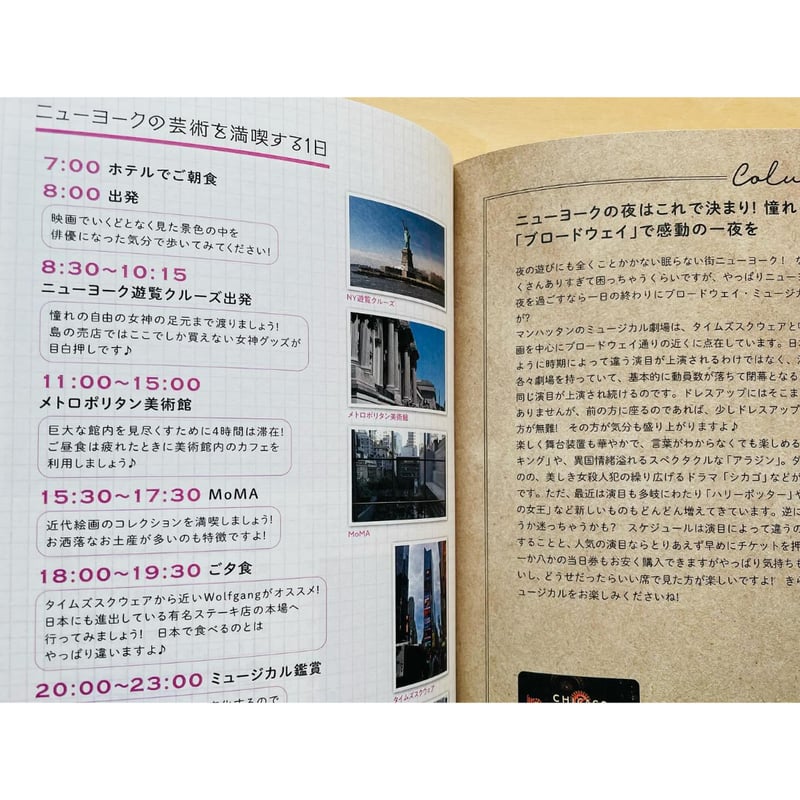 ニューヨークの芸術を満喫する1日
7:00 ホテルでご朝食
8:00 出発
映画でいくどとなく見た景色の中を
俳優になった気分で歩いてみてください!
8:30〜10:15
ニューヨーク遊覧クルーズ出発
憧れの自由の女神の足元まで渡りましょう!
島の売店ではここでしか買えない女神グッズが
目白押しです♪
11:00〜15:00
メトロポリタン美術館
巨大な館内を見尽くすために4時間は滞在!
ご昼食は疲れたときに美術館内のカフェを
利用しましょう♪
15:30〜17:30 MoMA
近代絵画のコレクションを満喫しましょう!
お洒落なお土産が多いのも特徴ですよ!
18:00〜19:30 ご夕食
タイムズスクウェアから近いWolfgangがオススメ!
日本にも進出している有名ステーキ店の本場へ
行ってみましょう! 日本で食べるのとは
やっぱり違いますよ♪
20:00〜23:00 ミュージカル鑑賞
NY遊覧クルーズ
メトロポリタン美術館
MoMA
タイムズスクウェア
Colu
ニューヨークの夜はこれで決まり! 憧れ
「ブロードウェイ」で感動の一夜を
夜の遊びにも全くことかかない眠らない街ニューヨーク! な
くさんありすぎて困っちゃうくらいですが、やっぱりニュー
夜を過ごすなら一日の終わりにブロードウェイ・ミュージ
が?
マンハッタンのミュージカル劇場は、タイムズスクウェアと
画を中心にブロードウェイ通りの近くに点在しています。日
ように時期によって違う演目が上演されるわけではなく、
各々劇場を持っていて、基本的に動員数が落ちて閉幕となる
同じ演目が上演され続けるのです。ドレスアップにはそこま
ありませんが、前の方に座るのであれば、少しドレスアップ
方が無難! その方が気分も盛り上がりますよ♪
楽しく舞台装置も華やかで、言葉がわからなくても楽しめる
キング」や、異国情緒溢れるスペクタクルな「アラジン」。
のの、美しき女殺人犯の繰り広げるドラマ「シカゴ」などが
です。ただ、最近は多岐にわたり「ハリーポッター」や
の女王」など新しいものもどんどん増えてきています。逆に
うか迷っちゃうかも? スケジュールは演目によって違うの
することと、人気の演目ならとりあえず早めにチケットを押
一か八かの当日券もお安く購入できますがやっぱり気持ちも
いし、どうせだったらいい席で見た方が楽しいですよ! き
ュージカルをお楽しみくださいね!
CHICAGO